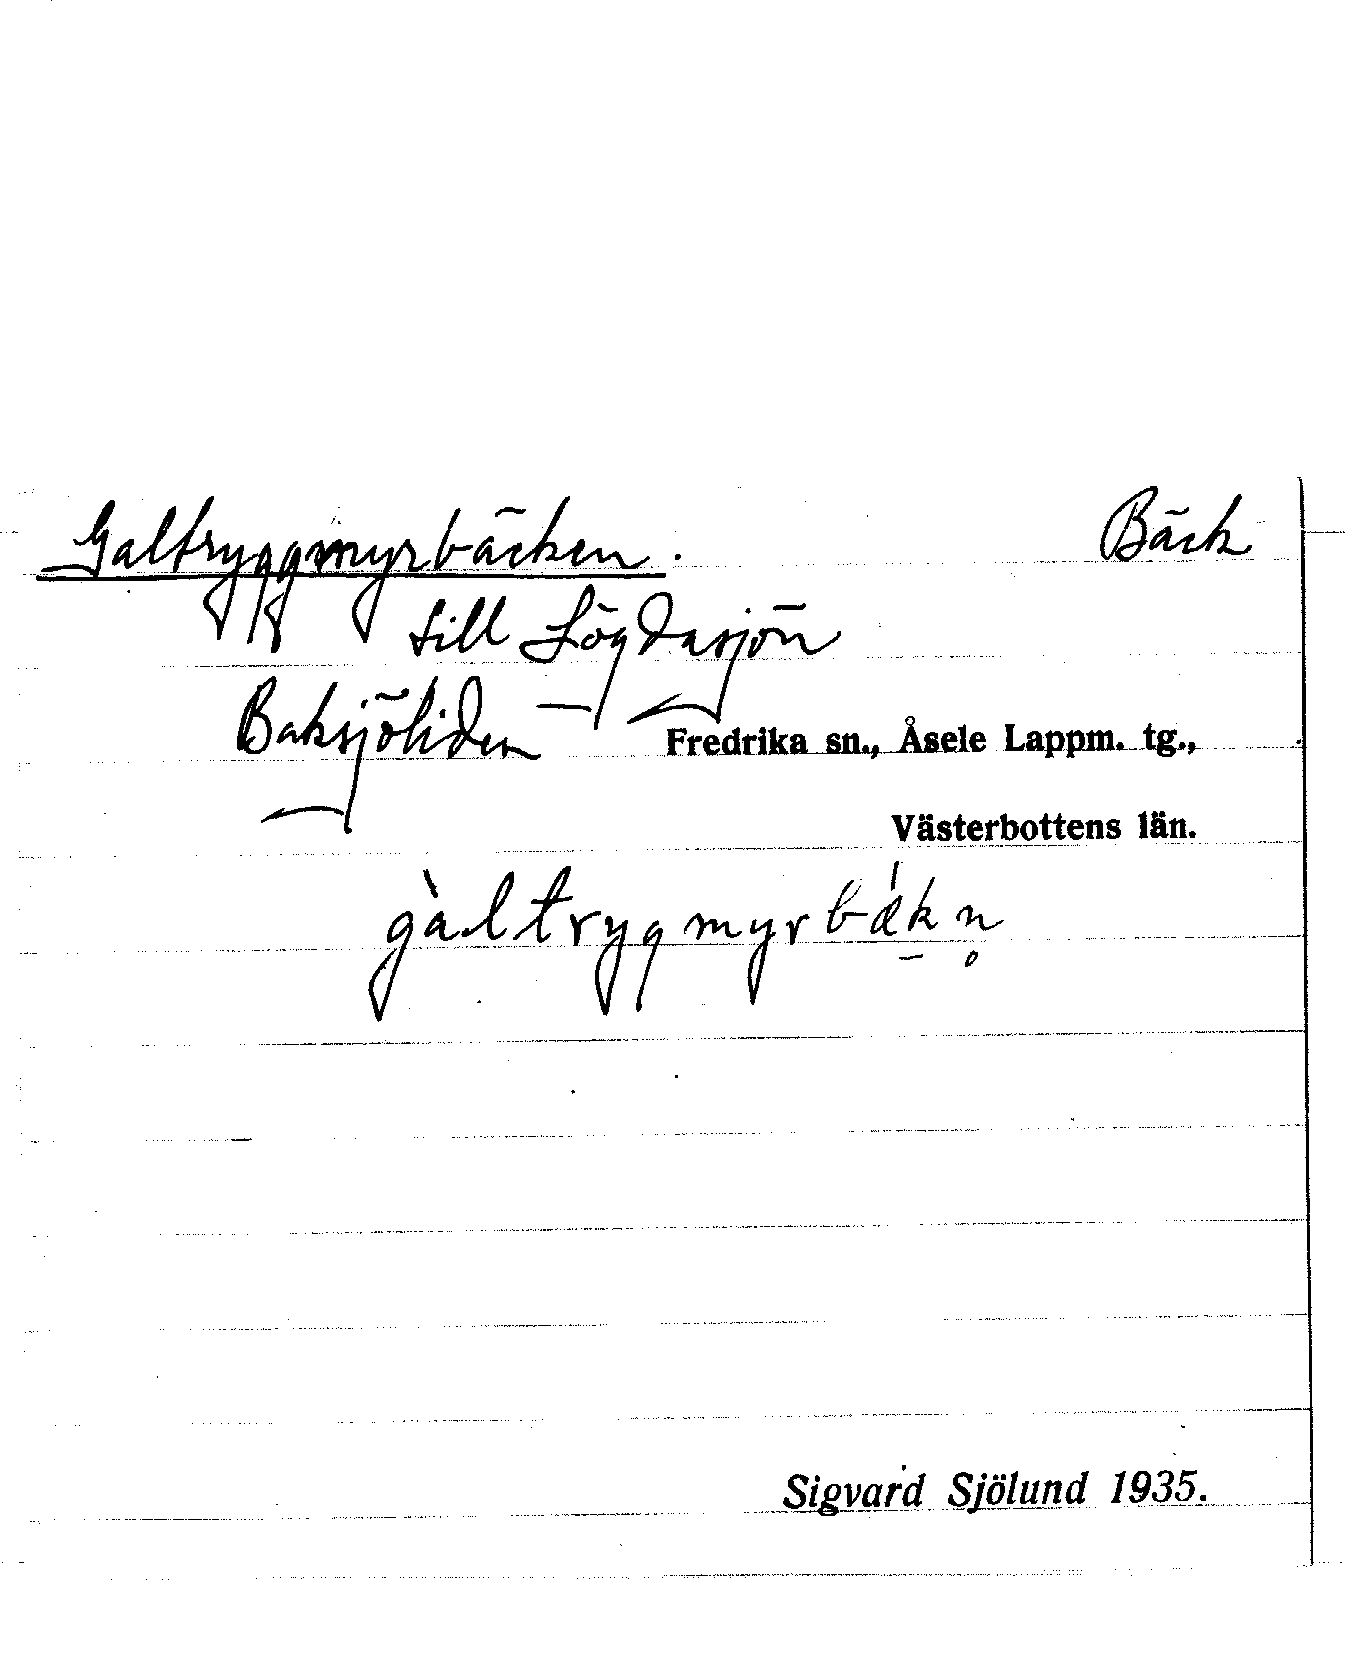 Galtryggmyrbäcken. Bäck
till Lögdasjön
Baksjöliden Fredrika sn., Åsele Lappm. tg.,
Västerbottens län.
gàltrygmyrbǽ̠kn̥
Sigvard Sjölund 1935.